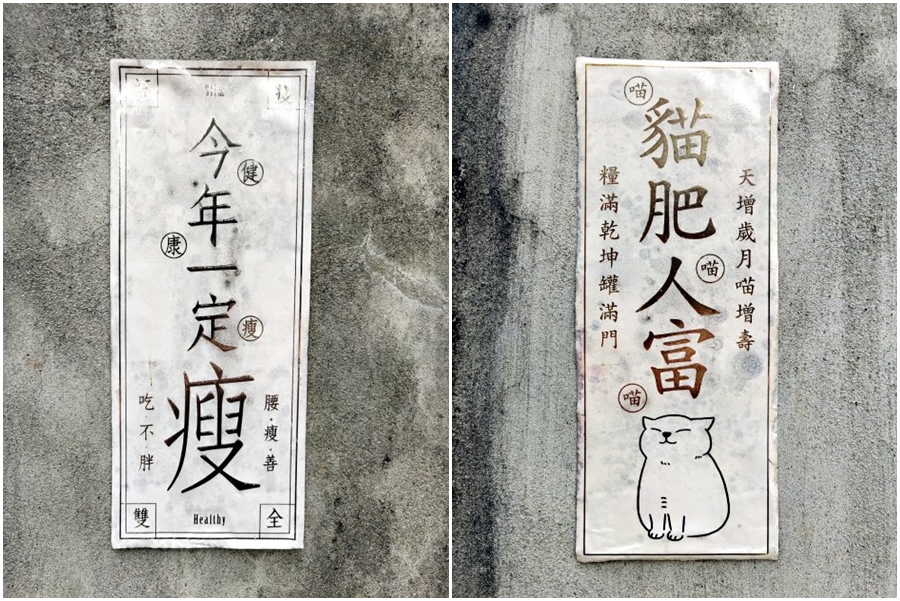 今年一定瘦
健
康
瘦
腰·瘦·善
吃 不 胖
雙
Healthy
全
喵
貓肥人富
喵
喵
天增歲月喵增壽
糧滿乾坤罐滿門